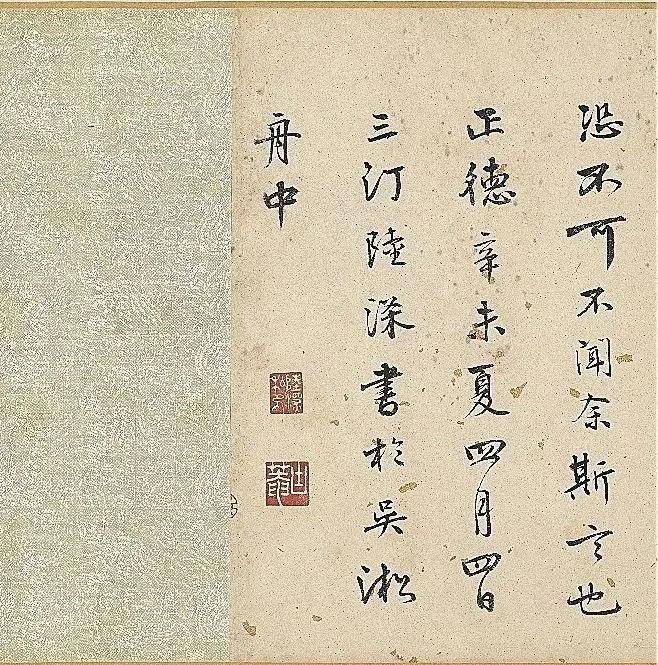 恐不可不聞余斯言也
正德辛未夏四月四日
三汀陸深書於吳淞
舟中